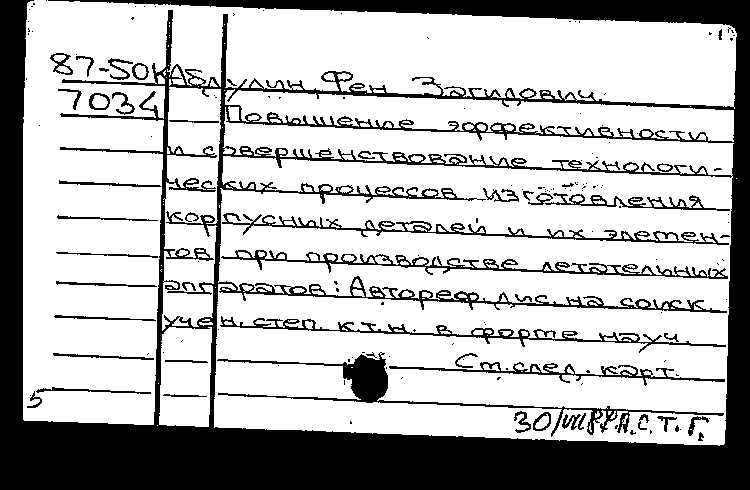 87-50к Абдулин, Фен Загидович.
7034 Повышение эффективности
и совершенствование технологи-
ческих процессов изготовления
корпусных деталей и их элемен-
тов при производстве летательных
аппаратов: Автореф. дис. на соиск.
учен. степ. к.т.н. в форме науч.
См. след. карт.
5
30/VII А.С.Т.Г.